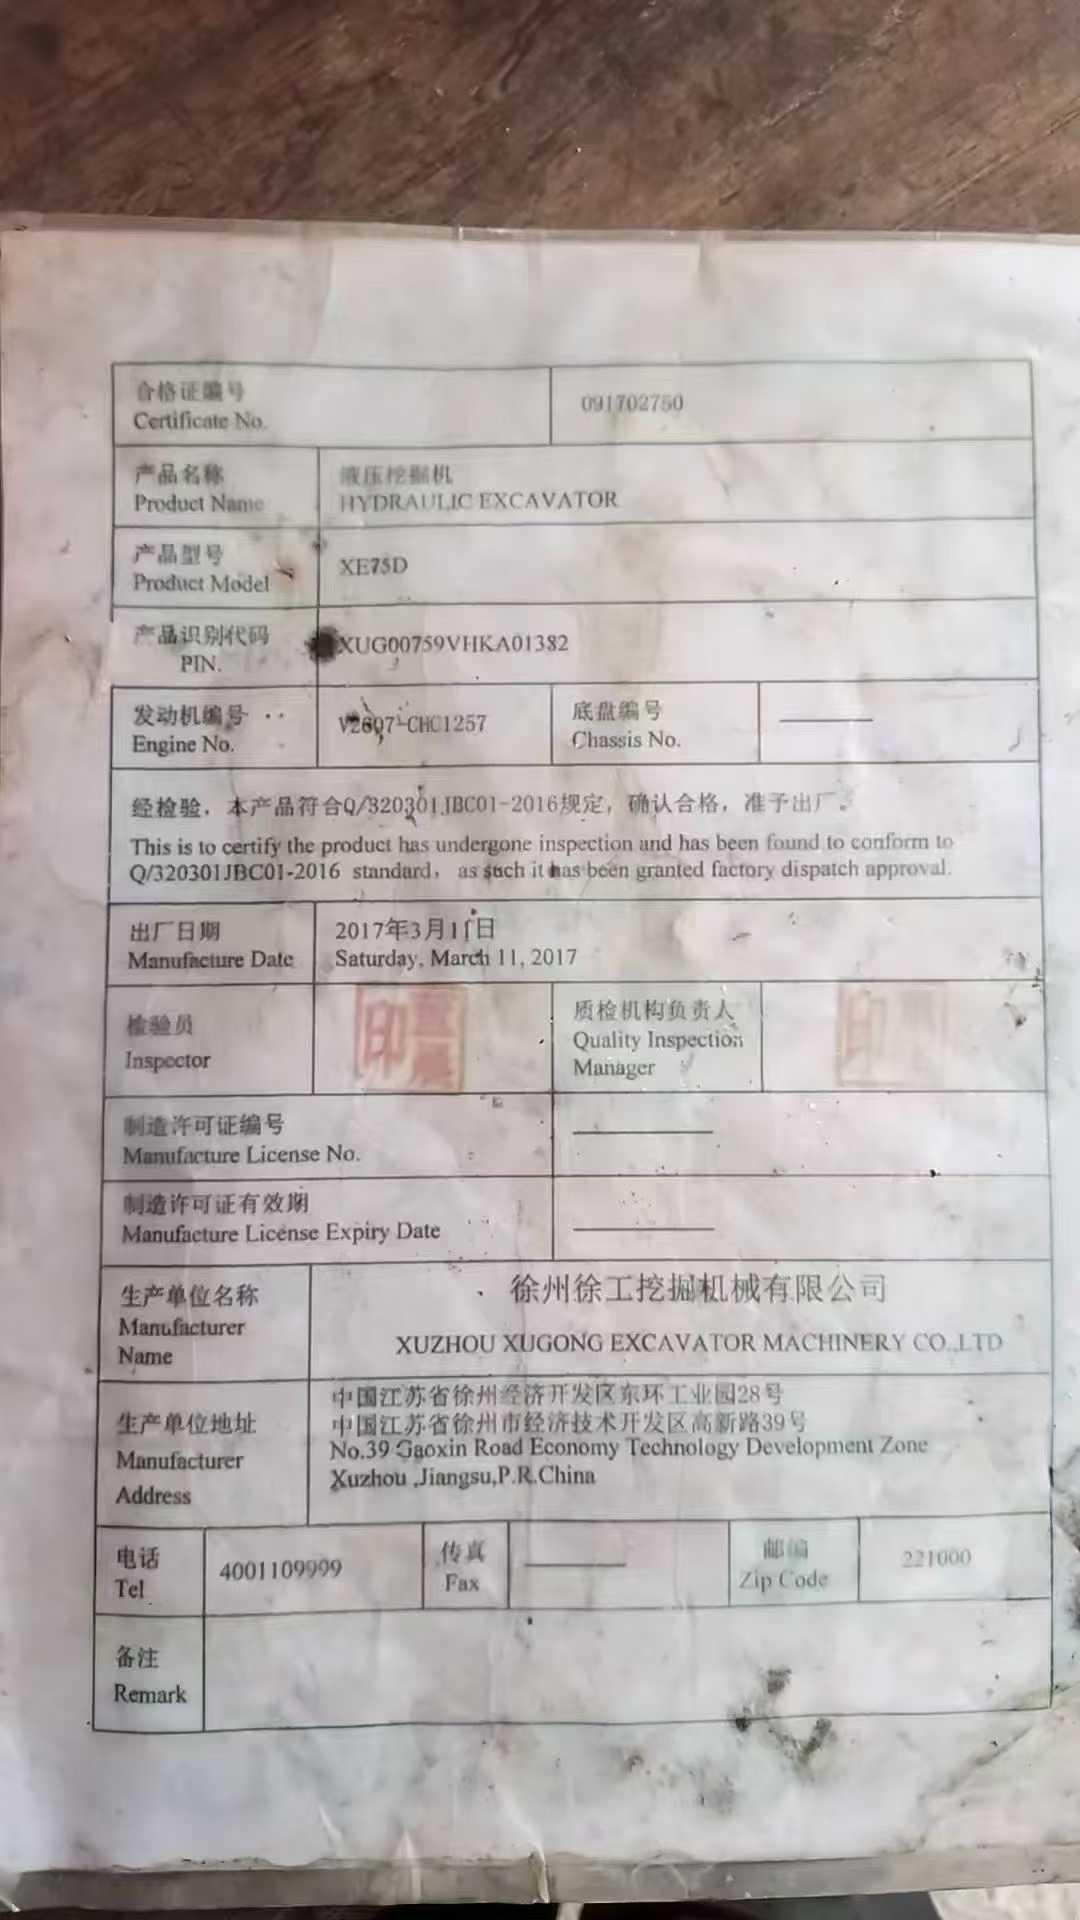 合格证编号
Certificate No.
091702750
产品名称
Product Name
液压挖掘机
HYDRAULIC EXCAVATOR
产品型号
Product Model
XE75D
产品识别代码
PIN.
XUG00759VHKA01382
发动机编号
Engine No.
V2607-CHC1257
底盘编号
Chassis No.
经检验，本产品符合Q/320301JBC01-2016规定，确认合格，准予出厂。
This is to certify the product has undergone inspection and has been found to conform to
Q/320301JBC01-2016 standard, as such it has been granted factory dispatch approval.
出厂日期
Manufacture Date
2017年3月11日
Saturday, March 11, 2017
检验员
Inspector
印
质检机构负责人
Quality Inspection
Manager
印
制造许可证编号
Manufacture License No.
制造许可证有效期
Manufacture License Expiry Date
生产单位名称
Manufacturer
Name
徐州徐工挖掘机械有限公司
XUZHOU XUGONG EXCAVATOR MACHINERY CO.,LTD
生产单位地址
Manufacturer
Address
中国江苏省徐州经济开发区东环工业园28号
中国江苏省徐州市经济技术开发区高新路39号
No.39 Gaoxin Road Economy Technology Development Zone
Xuzhou ,Jiangsu,P.R.China
电话
Tel
4001109999
传真
Fax
邮编
Zip Code
221000
备注
Remark